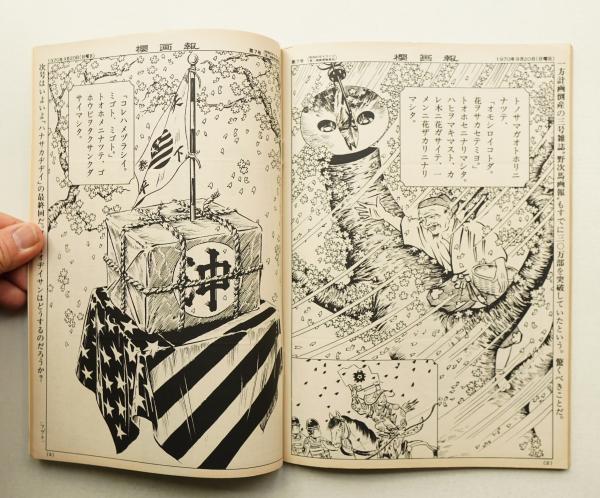 方計画倒産の三号雑誌『野次馬画報』もすでに三〇万部を突破していたという。驚くべきことだ。
1970年9月20日(日曜日)
櫻画報
第7号
トノサマガオトホリニ
ナツテ、
「オモシロイコトダ。
花ヲサカセテミヨ。」
トオホセニナリマシタ。
ハヒヲマキマスト、カ
レ木ニ花ガサイテ、一
メンニ花ザカリニナリ
マシタ。
(2)
第7号
櫻画報
1970年9月20日(日曜日)
「コレハメヅラシイ。
ミゴト、ミゴト。」
トオホメニナツテ、ゴ
ホウビヲタクサンクダ
サイマシタ。
沖
次号はいよいよ『ハナサカヂヂイ』の最終回だ
ヂイサンはどうするのだろうか?
(3)